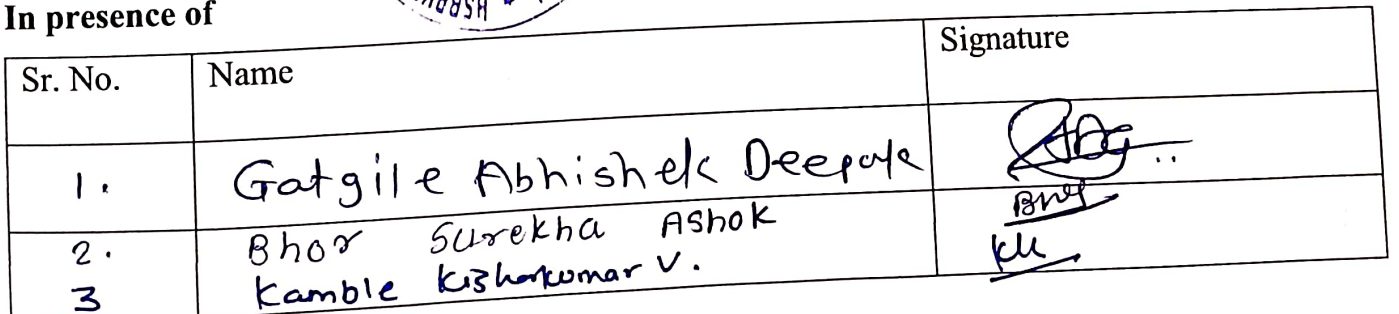 In presence of
Sr. No. Name Signature
1. Gatgile Abhishek Deepak
2. Bhor Surekha Ashok
3 Kamble Kishorkumar V.